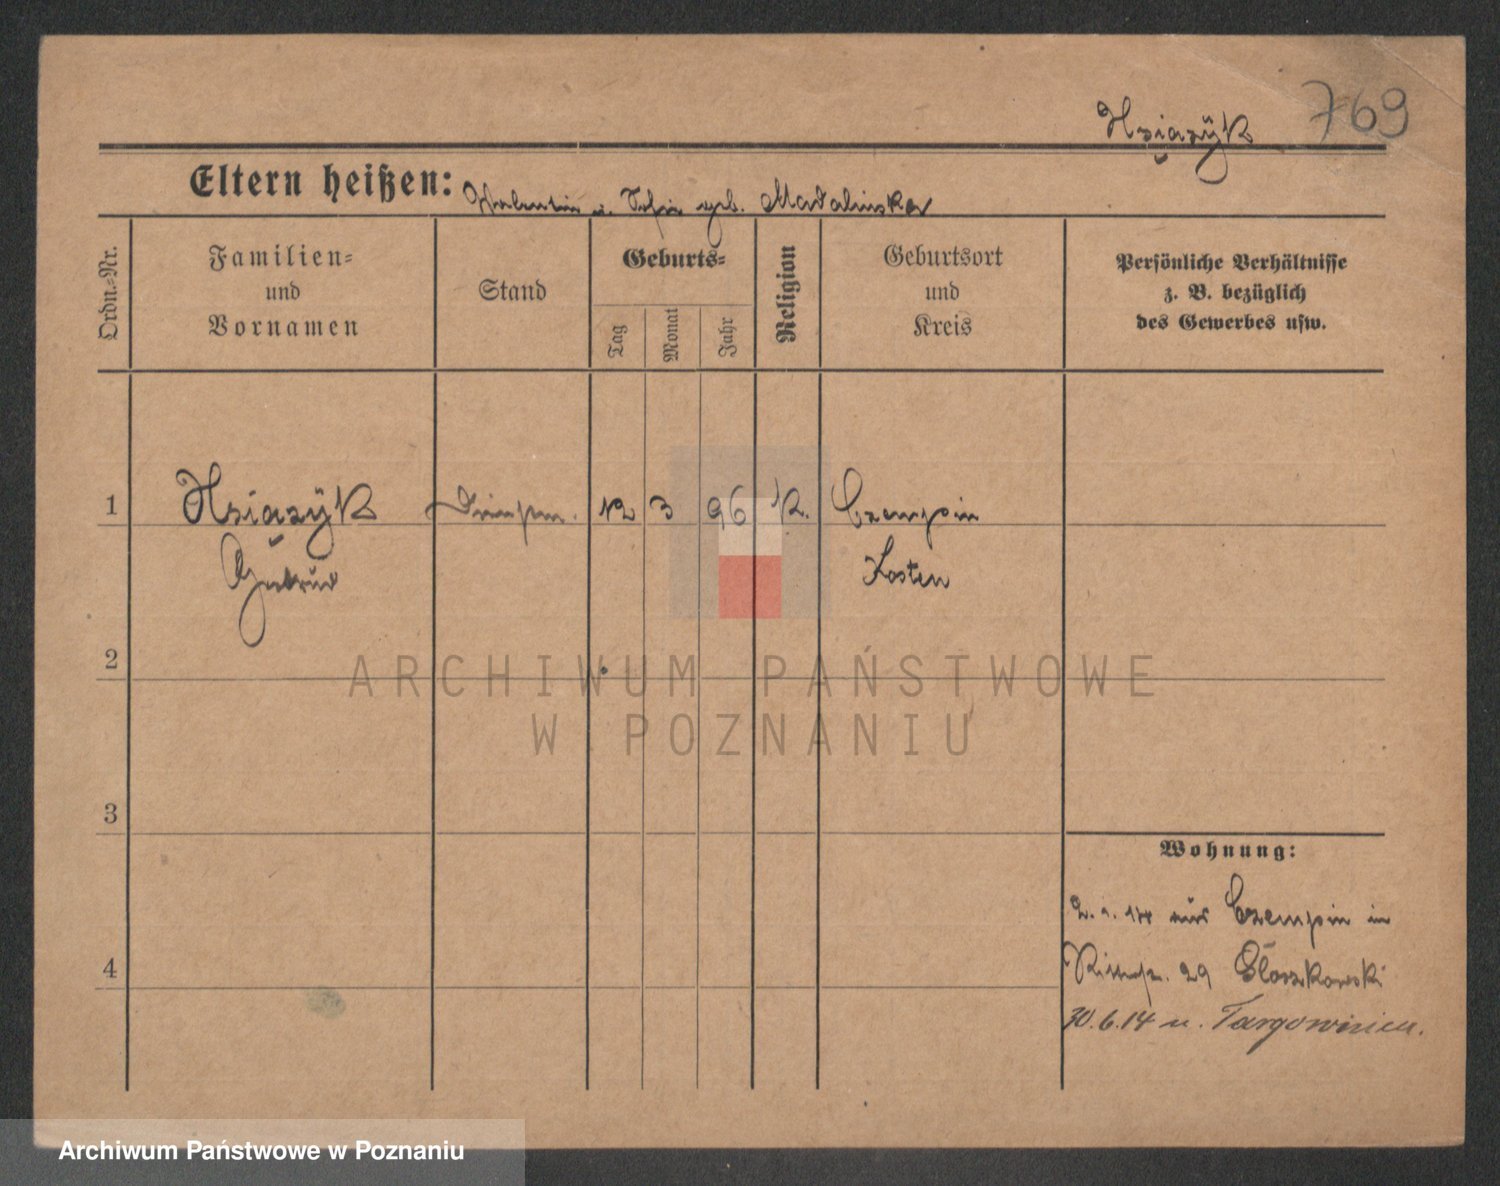 769
Ksiązÿk
Eltern heißen: Valentin u. Sofie geb. Madalinska
Ordn.-Nr.
Familien-
und
Vornamen
Stand
Geburts-
Tag
Monat
Jahr
Religion
Geburtsort
und
Kreis
Persönliche Verhältnisse
z. B. bezüglich
des Gewerbes usw.
1 Ksiązÿk 12 3 96 K. Czempin
Kosten
2
3
4
Wohnung:
2. 1. 14 aus Czempin in
29
30. 6. 14 n. Targowisko
ARCHIWUM PAŃSTWOWE
W POZNANIU
Archiwum Państwowe w Poznaniu